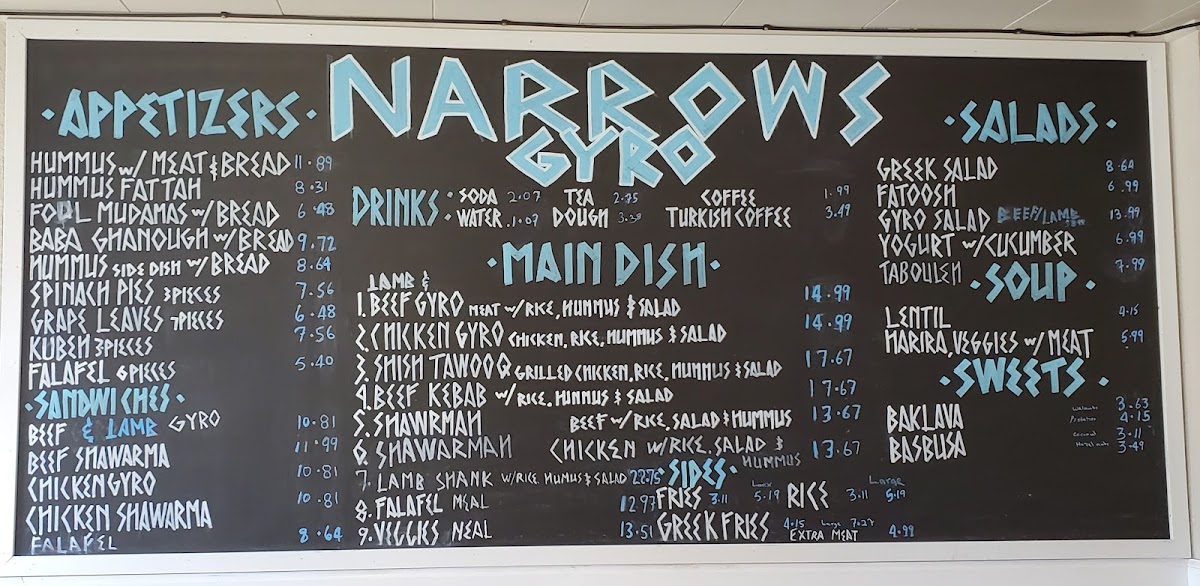 NARROWS
GYRO
·APPETIZERS·
HUMMUS w/ MEAT & BREAD 11.89
HUMMUS FATTAH 8.31
FOUL MUDAMAS w/ BREAD 6.48
BABA GHANOUGH w/ BREAD 9.72
HUMMUS SIDE DISH w/ BREAD 8.64
SPINACH PIES 3PIECES 7.56
GRAPE LEAVES 7PIECES 6.48
KUBEH 3PIECES 7.56
FALAFEL 6PIECES 5.40
·SANDWICHES·
BEEF & LAMB GYRO 10.81
BEEF SHAWARMA 11.99
CHICKEN GYRO 10.81
CHICKEN SHAWARMA 10.81
FALAFEL 8.64
DRINKS
· SODA 2.07 TEA 2.75 COFFEE 1.99
· WATER .1.07 DOUGH TURKISH COFFEE 3.49
·MAIN DISH·
LAMB &
1. BEEF GYRO MEAT w/ RICE, HUMMUS & SALAD 14.99
2. CHICKEN GYRO CHICKEN, RICE, HUMMUS & SALAD 14.99
3. SHISH TAWOOQ GRILLED CHICKEN, RICE, HUMMUS & SALAD 17.67
4. BEEF KEBAB w/ RICE, HUMMUS & SALAD 17.67
5. SHAWRMAH BEEF w/ RICE, SALAD & HUMMUS 13.67
6. SHAWARMAH CHICKEN W/ RICE, SALAD & HUMMUS 13.67
7. LAMB SHANK W/ RICE, HUMUS & SALAD 22.75
8. FALAFEL MEAL 12.97
9. VEGGIES MEAL 13.51
·SIDES·
FRIES 3.11 Large 5.19 RICE 3.11 Large 5.19
GREEK FRIES 4.15 Large 7.27 EXTRA MEAT 4.99
·SALADS·
GREEK SALAD 8.64
FATOOSH 6.99
GYRO SALAD BEEF/LAMB 13.99
YOGURT w/ CUCUMBER 6.99
TABOULEH 7.99
·SOUP·
LENTIL 4.15
HARIRA, VEGGIES w/ MEAT 5.99
·SWEETS·
BAKLAVA Walnuts 3.63
Pistachio 4.15
BASBUSA Coconut 3.11
Hazelnuts 3.49